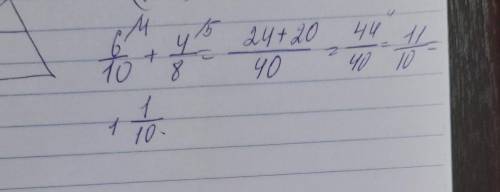 6/10 /4 + 4/8 /5 = 24+20/40 = 44/40 = 11/10 =
1 1/10.